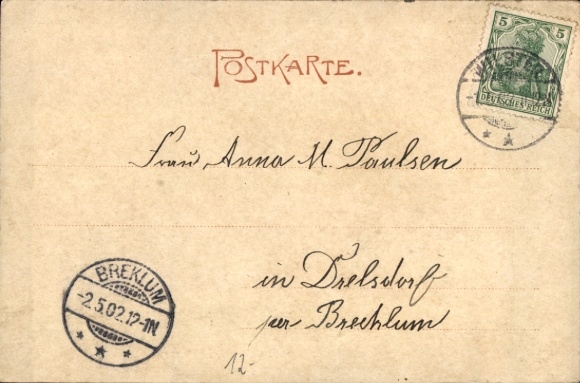 POSTKARTE.
5 5
WILSTER
DEUTSCHES REICH
Frau Anna M. Paulsen
in Drelsdorf
per Brecklum
BREKLUM
-2.5.02.12-1N
12-